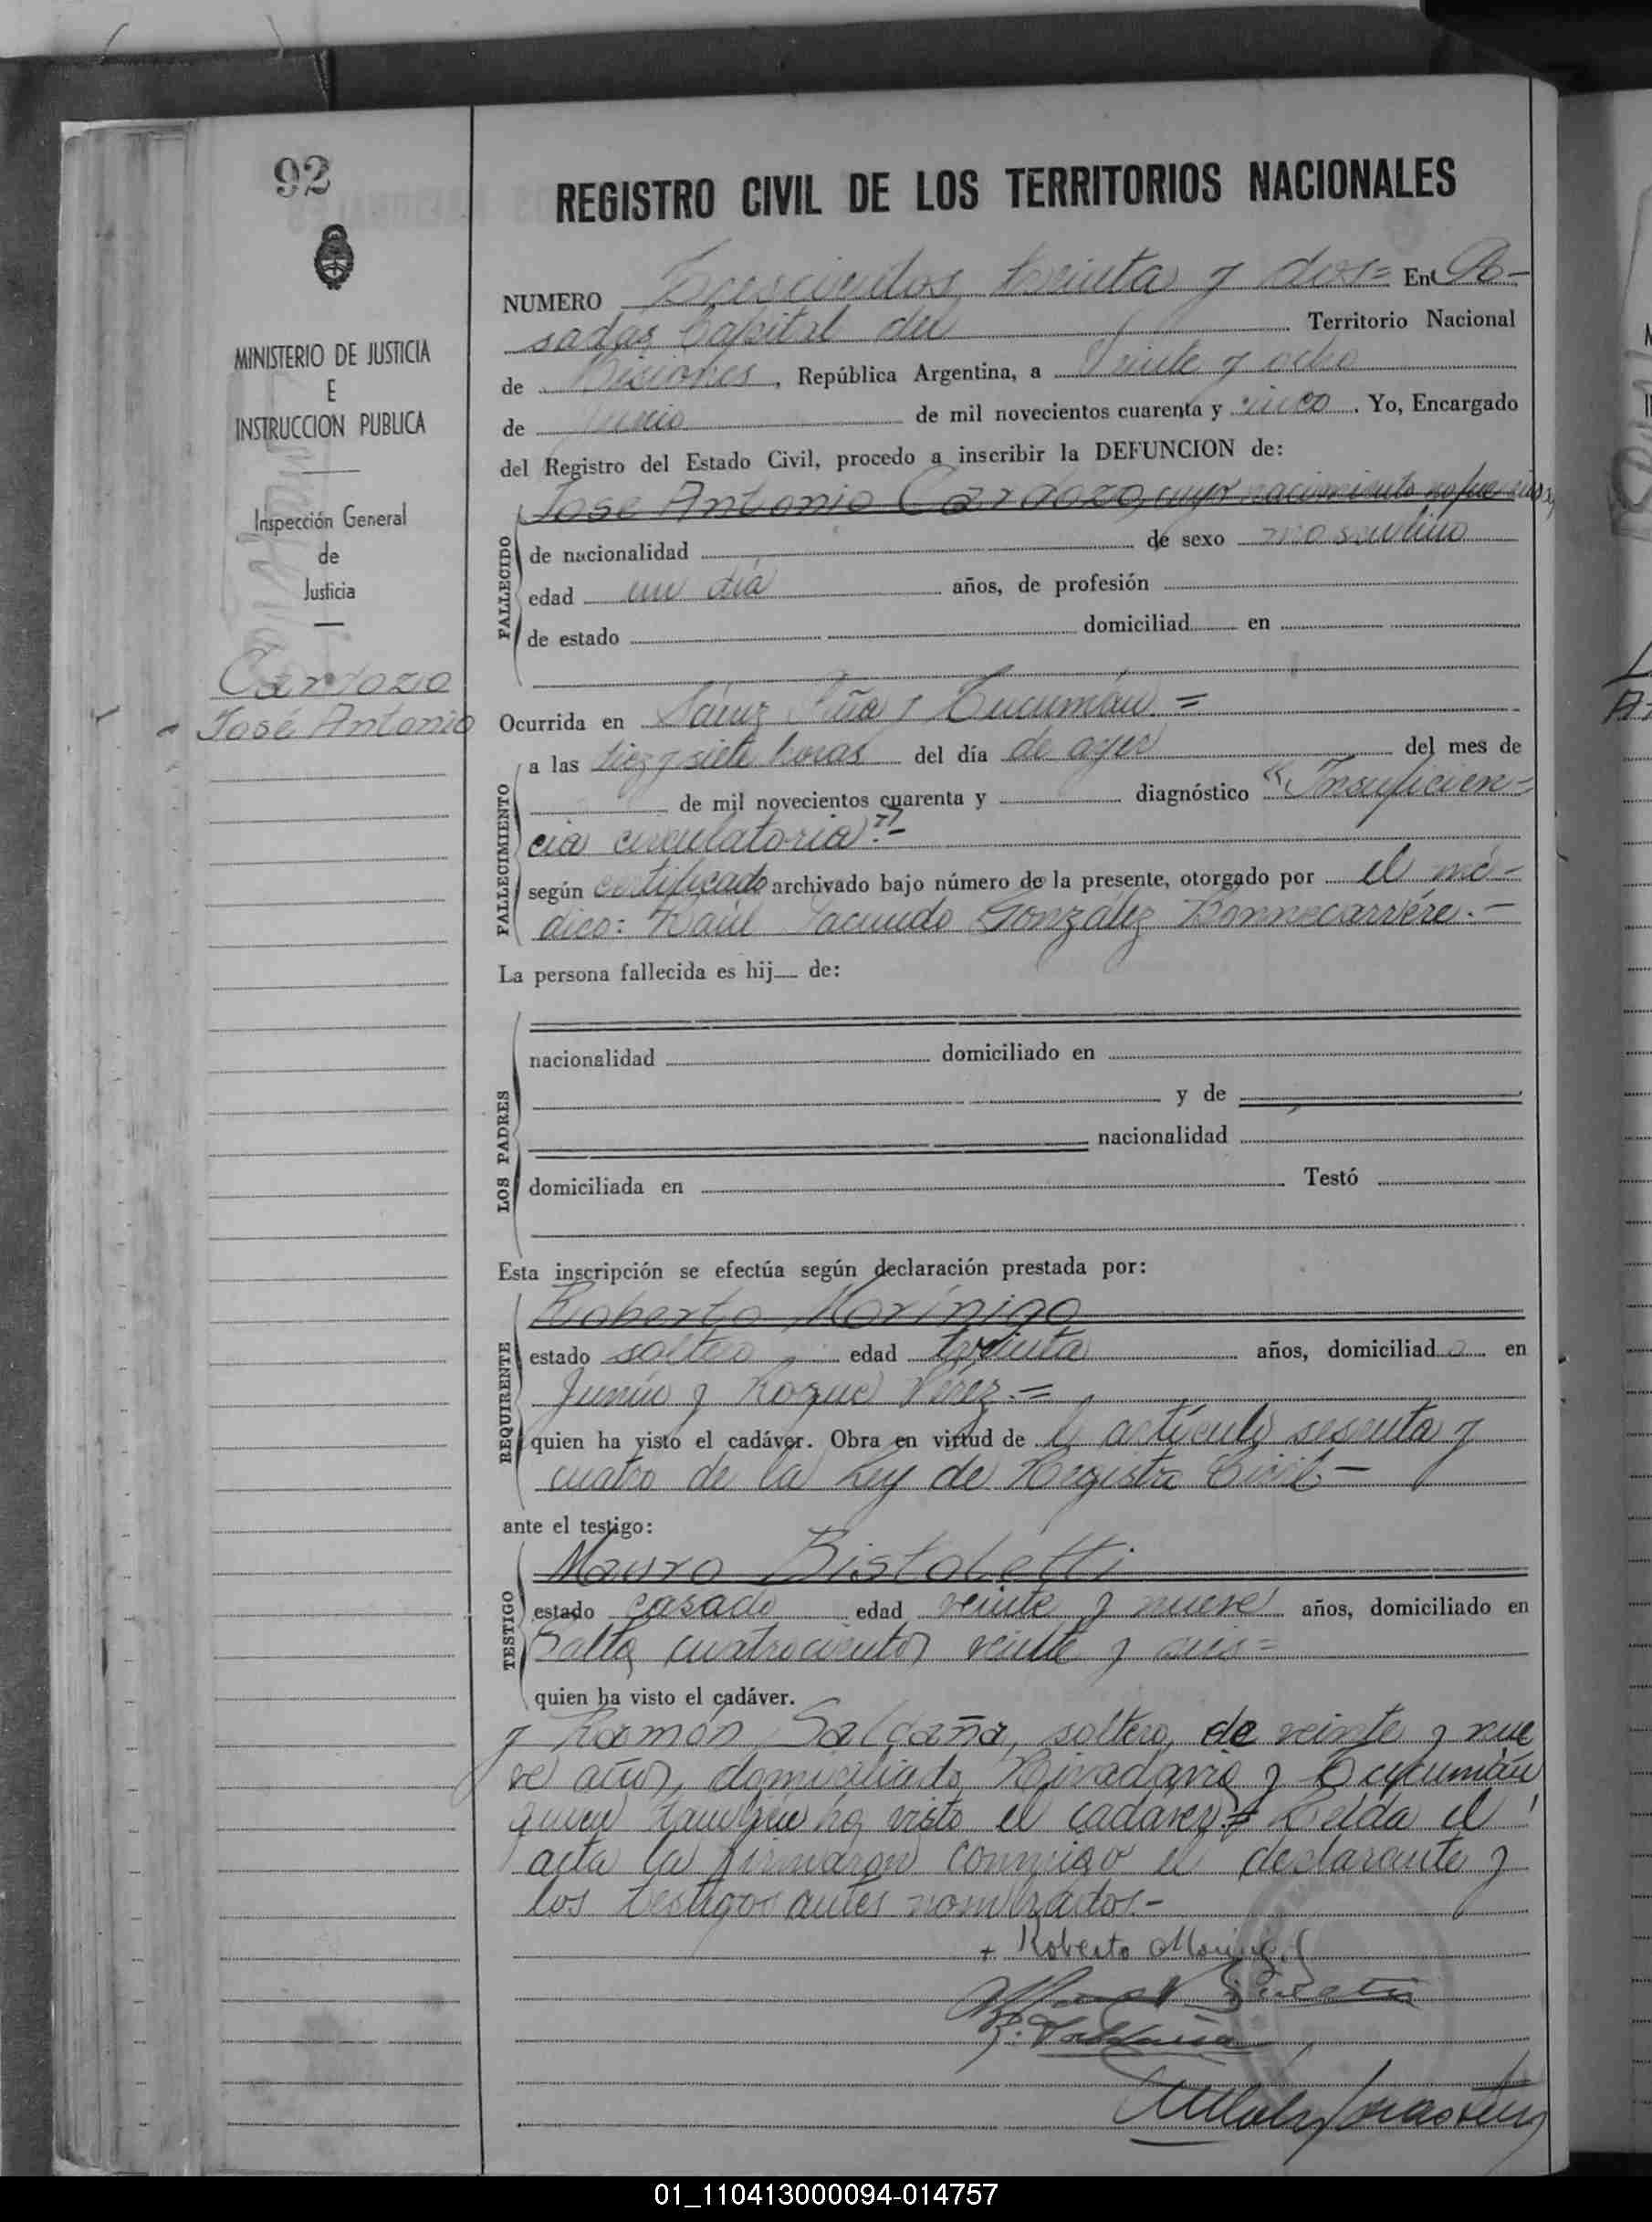 92
MINISTERIO DE JUSTICIA
E
INSTRUCCION PUBLICA
Inspección General
de
Justicia
Cardozo
José Antonio
REGISTRO CIVIL DE LOS TERRITORIOS NACIONALES
NUMERO Trescientos treinta y dos= En Po-
sadas Capital del Territorio Nacional
de Misiones, República Argentina, a Veinte y ocho
de Junio de mil novecientos cuarenta y cinco. Yo, Encargado
del Registro del Estado Civil, procedo a inscribir la DEFUNCION de:
José Antonio Cardozo, cuyo nacimiento no fue
FALLECIDO
de nacionalidad de sexo masculino
edad un día años, de profesión
de estado domiciliad en
Ocurrida en Sáenz Peña y Tucumán.=
FALLECIMIENTO
a las diez y siete horas del día de ayer del mes de
de mil novecientos cuarenta y diagnóstico "Insuficien-
cia circulatoria".-
según certificado archivado bajo número de la presente, otorgado por el mé-
dico: Raúl Facundo González Bonnecarrére.-
La persona fallecida es hij de:
LOS PADRES
nacionalidad domiciliado en
y de
nacionalidad
domiciliada en Testó
Esta inscripción se efectúa según declaración prestada por:
REQUIRENTE
Roberto Morínigo
estado soltero edad treinta años, domiciliado en
Junín y Roque Pérez.=
quien ha visto el cadáver. Obra en virtud del artículo sesenta y
cuatro de la Ley de Registro Civil.-
ante el testigo:
TESTIGO
Mauro Bistoletti
estado casado edad veinte y nueve años, domiciliado en
Salta cuatrocientos veinte y seis=
quien ha visto el cadáver.
y Ramón Saldaña, soltero, de veinte y nue
ve años, domiciliado Rivadavia y Tucumán
quien también ha visto el cadáver.= Leída el
acta la firmaron conmigo el declarante y
los testigos antes nombrados.-
+ Roberto Morinigo
R. Saldaña
01_110413000094-014757